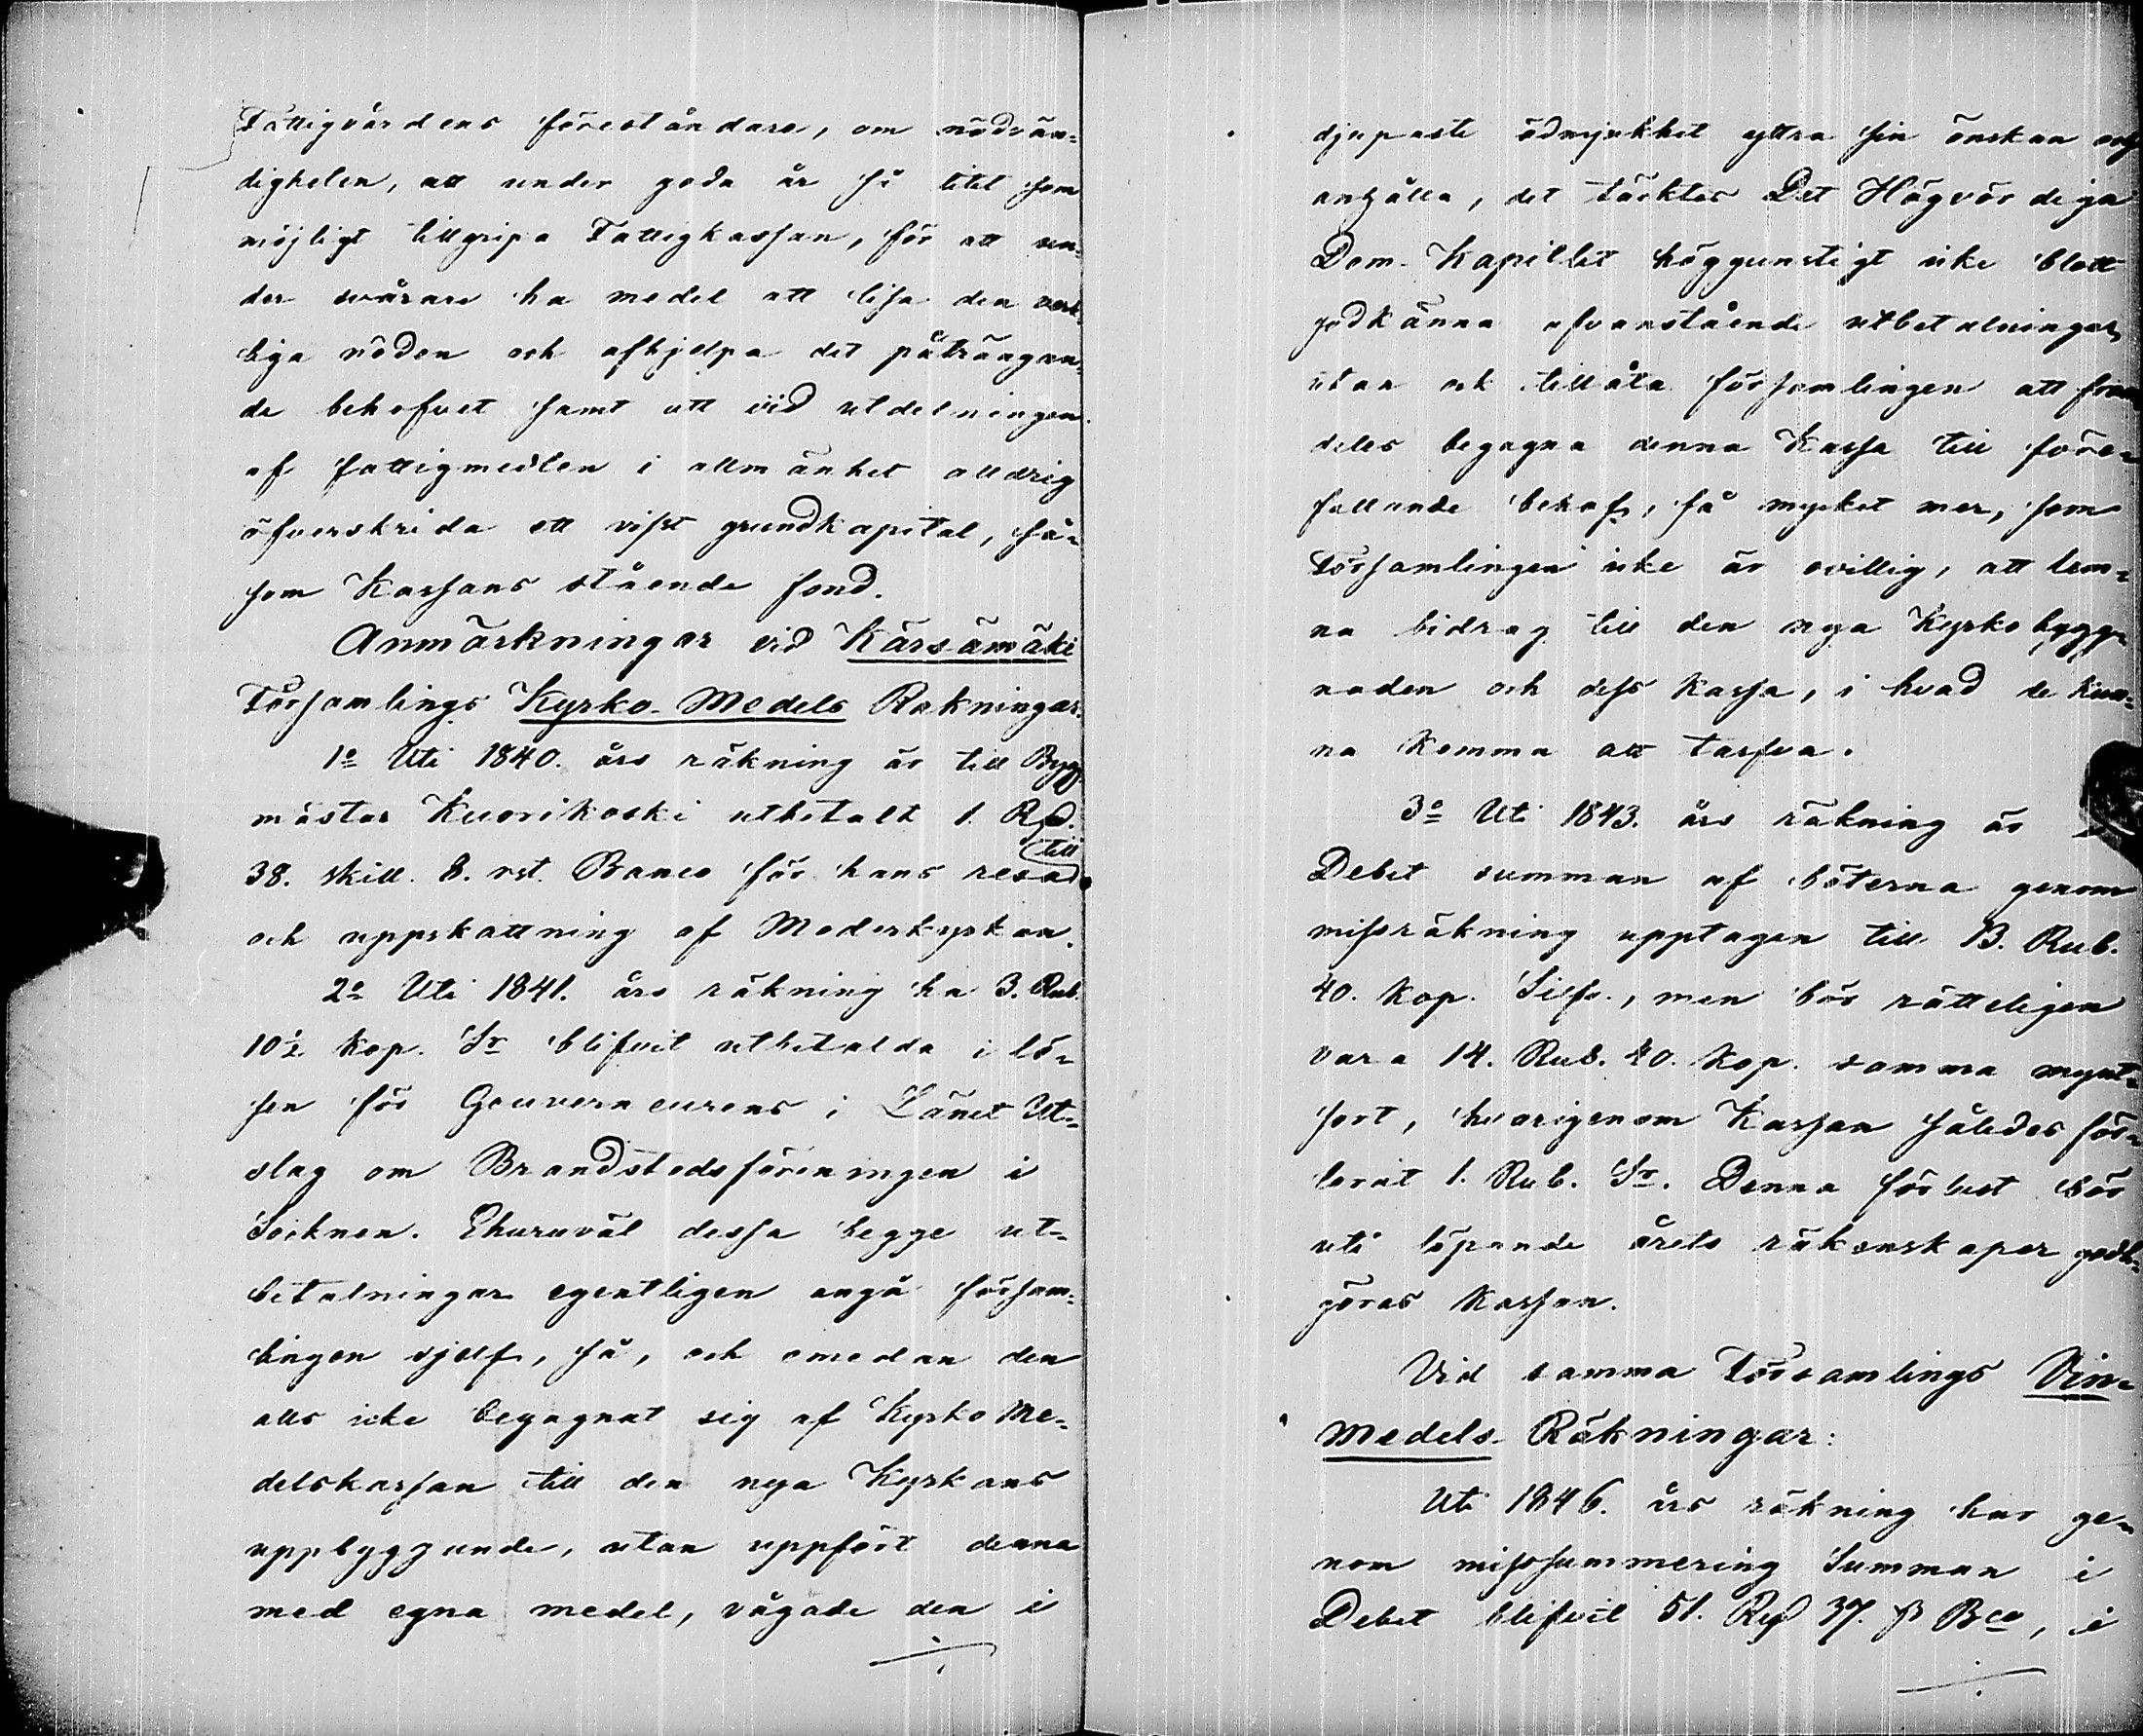 Fattigvårdens föreståndare, om nödvän=
digheten, att under goda år så litet som
möjligt tillgripa Fattigkassan, för att un=
der svårare ha medel att lisa den verk=
liga nöden och afhjelpa det påträngan=
de behofvet samt att vid utdelningen
af fattigmedlen i allmänhet alldrig
öfverskrida ett visst grundkapital, så=
som Kassans stående fond.
Anmärkningar vid Kärsämäki
Församlings Kyrko-Medels Räkningar.
1o Uti 1840. års räkning är till Bygg
mästar Kuorikoski utbetalt 1. Rd.
38. skill. 8. rst. Banco för hans resa till
och uppskattning af Moderkyrkan.
2o Uti 1841. års räkning ha 3. Rub.
10½ kop. Sr blifvit utbetalda i lö=
sen för Gouverneurens i Länet Ut=
slag om Brandstodsföreningen i
Socknen. Ehuruväl dessa begge ut=
betalningar egentligen angå försam=
lingen sjelf, så, och emedan den
alls icke begagnat sig af Kyrko Me=
delskassan till den nya Kyrkans
uppbyggande, utan uppfört denna
med egna medel, vågade den i
djupaste ödmjukhet yttra sin önskan och
anhålla, det täcktes Det Högvördiga
Dom-Kapitlet höggunstigt icke blott
godkänna ofvanstående utbetalningar,
utan ock tillåta församlingen att fram
deles begagna denna Kassa till före=
fallande behof, så mycket mer, som
Församlingen icke är ovillig, att lem=
na bidrag till den nya Kyrkobygg=
naden och dess Kassa, i hvad de kun=
na komma att tarfva.
3o Uti 1843. års räkning är
Debet summan af böterna genom
missräkning upptagen till 13. Rub.
40. Kop. Silfv., men bör rätteligen
vara 14. Rub. 40. Kop. samma mynt=
sort, hvarigenom Kassan således för=
lorat 1. Rub. Sr. Denna förlust bör
uti löpande årets räkenskaper godt=
göras Kassan.
Vid samma Församlings Vin=
Medels Räkningar:
Uti 1846. års räkning har ge=
nom misssummering Summan i
Debet blifvit 51. Rd 37. ß Bco, i